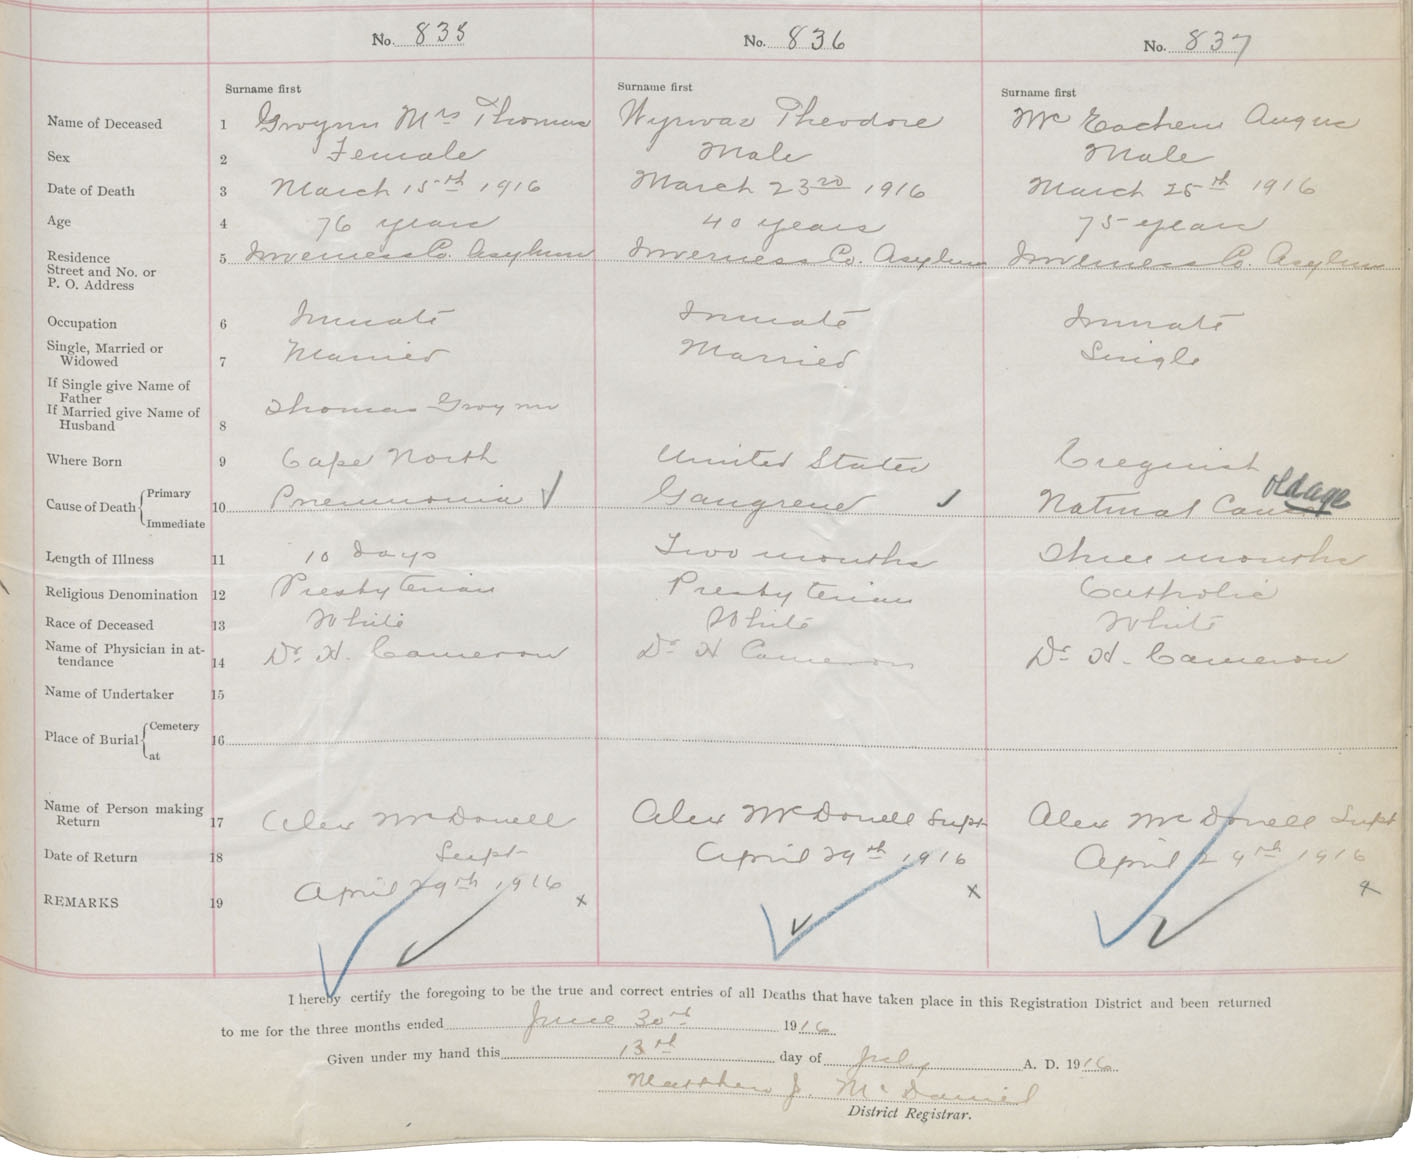 No. 835 No. 836 No. 837
Surname first Surname first Surname first
Name of Deceased 1 Gwynn Mrs Thomas Theodore Mc Eachern Angus
Sex 2 Female Male Male
Date of Death 3 March 15th 1916 March 23rd 1916 March 25th 1916
Age 4 76 years 40 years 75 years
Residence Street and No. or P. O. Address 5 Inverness Co. Asylum Inverness Co. Asylum Inverness Co. Asylum
Occupation 6 Inmate Inmate Inmate
Single, Married or Widowed 7 Married Married Single
If Single give Name of Father
If Married give Name of Husband 8 Thomas Gwynn
Where Born 9 Cape North United States Creignish
Cause of Death { Primary Immediate 10 Pneumonia Gangrene Natural Cause old age
Length of Illness 11 10 days Two months Three months
Religious Denomination 12 Presbyterian Presbyterian Catholic
Race of Deceased 13 White White White
Name of Physician in attendance 14 Dr H. Cameron Dr H Cameron Dr H. Cameron
Name of Undertaker 15
Place of Burial { Cemetery at 16
Name of Person making Return 17 Alex McDonell Supt Alex McDonell Supt Alex McDonell Supt
Date of Return 18 April 29th 1916 April 29th 1916 April 29th 1916
REMARKS 19 x x x
I hereby certify the foregoing to be the true and correct entries of all Deaths that have taken place in this Registration District and been returned
to me for the three months ended June 30th 1916
Given under my hand this 13th day of July A. D. 1916
Matthew J. McDaniel
District Registrar.